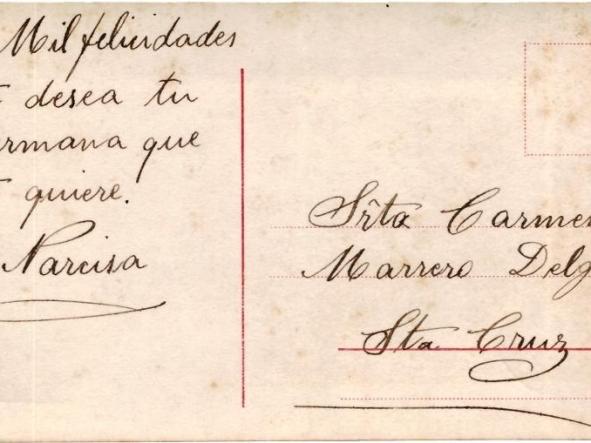 Mil felicidades
desea tu
rmana que
quiere.
Narcisa
Srta Carmen
Marrero Delg
Sta Cruz